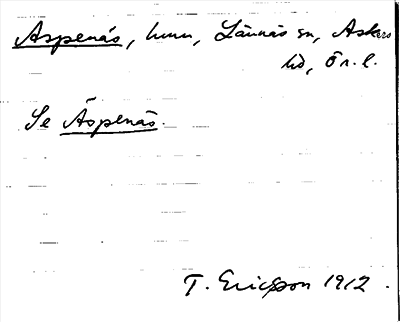 Aspenäs, hmn, Lännäs sn, Askers
hd, Ör. l.
Se Äspenäs.
T. Ericsson 1912.